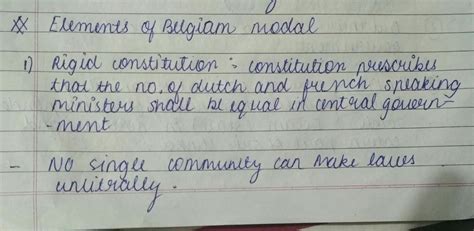 ※ Elements of Belgiam modal
1) Rigid constitution : constitution prescribes
that the no. of dutch and french speaking
ministers shall be equal in central govern-
-ment
- No single community can make laws
unliterally.